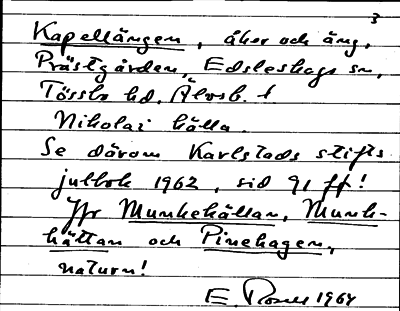 3
Kapellängen, åker och äng,
Prästgården, Edsleskogs sn,
Tössbo hd, Älvsb. l
Nikolai källa.
Se därom Karlstads stifts
julbok 1962, sid 91 ff!
Jfr Munkekällan, Munk-
hättan och Pinehagen,
naturn!
E. 1964